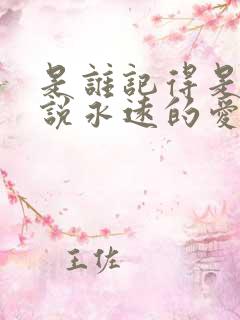 是誰記得是
說永遠的愛
王佐